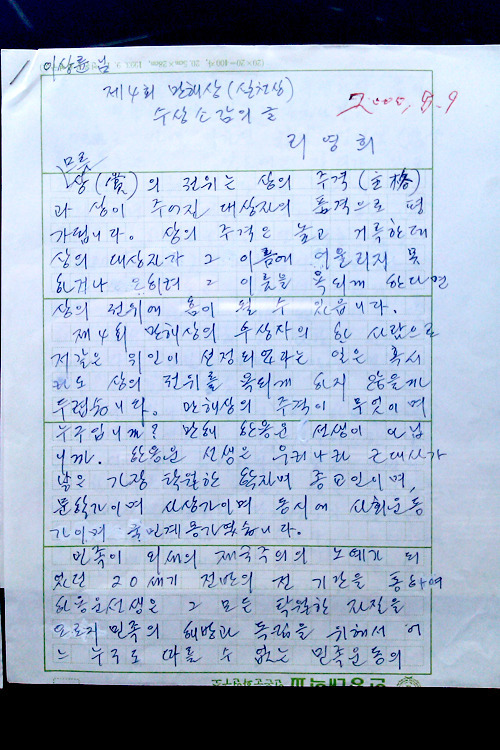 이상윤 님
제4회 만해상(실천상)
수상소감의 글
2000, 8. 9
리영희
무릇
상(賞)의 권위는 상의 주격(主格)
과 상이 주어질 대상자의 품격으로 평
가됩니다. 상의 주격은 높고 거룩한데
상의 대상자가 그 이름에 어울리지 못
하거나 오히려 그 이름을 욕되게 한다면
상의 권위에 흠이 될 수 있습니다.
제4회 만해상의 수상자의 한 사람으로
저같은 위인이 선정되었다는 일은 혹시
라도 상의 권위를 욕되게 하지 않을까
두렵습니다. 만해상의 주격이 무엇이며
누구입니까? 만해 한용운 선생이 아닙
니까. 한용운 선생은 우리나라 근대사가
낳은 가장 탁월한 학자며 종교인이며,
문학가이며 사상가이며 동시에 사회운동
가이며 국민계몽가였습니다.
민족이 외세의 제국주의의 노예가 되
었던 20세기 전반의 전 기간을 통하여
한용운선생은 그 모든 탁월한 자질을
오로지 민족의 해방과 독립을 위해서 어
느 누구도 따를 수 없는 민족운동의